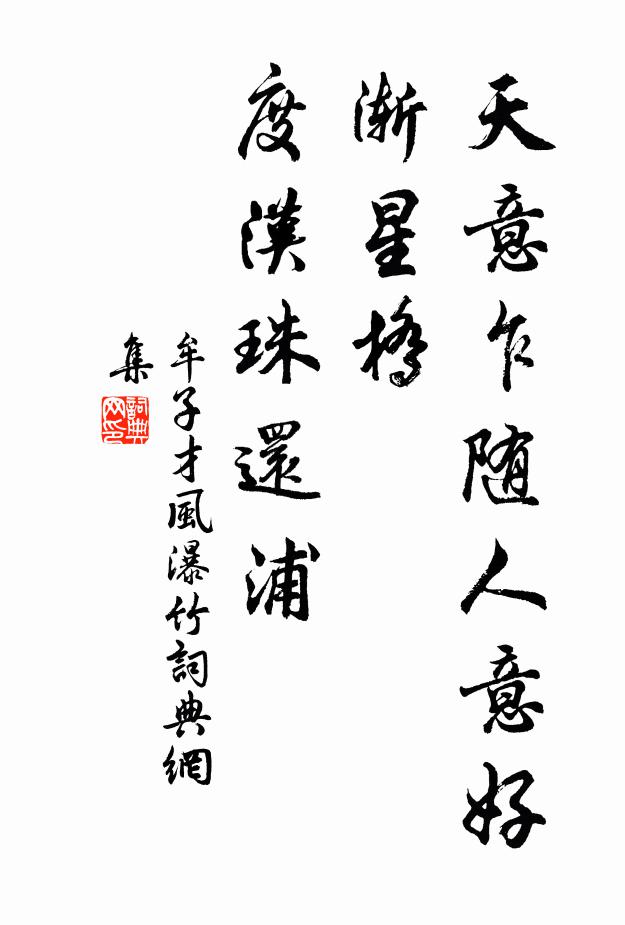 天意乍随人意好
渐星橋
度漢珠還浦
牟子才風瀑竹詞典網
集
詞典
网印